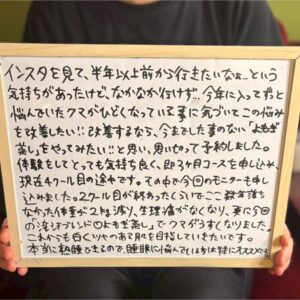 インスタを見て、半年以上前から行きたいなぁ…という
気持ちがあったけど、なかなか行けず…今年に入ってずっと
悩んでいたクマがひどくなっている事に気づいてこの悩み
を改善したい!!改善するなら、今までした事のない「よもぎ
蒸し」をやってみたい!!と思い、思い切って予約しました。
体験をしてとっても気持ち良く、即3ヶ月コースを申し込み、
現在4クール目の途中です。その中で今回のモニターも申し
込みました。2クール目が終わったくらいでここ数年落ち
なかった体重が2kg減り、生理痛がなくなり、更に今回
の ブレンド よもぎ蒸し」でクマがうすくなりました。
これからも白くツヤのある肌を目指していきたいです。
本当に熟睡できるので、睡眠に悩んでいる方は特にオススメです